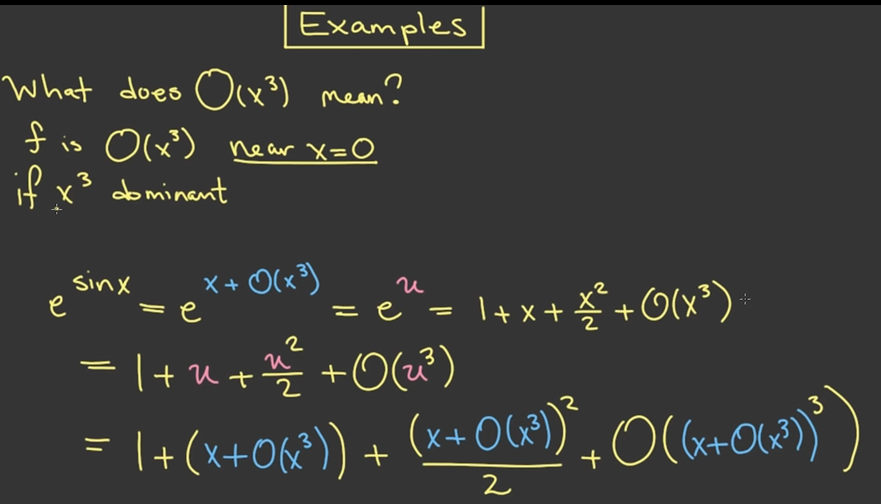 Examples
What does O(x³) mean?
f is O(x³) near x=0
if x³ dominant
e^{sinx} = e^{x + O(x³)} = e^u = 1 + x + x²/2 + O(x³)
= 1 + u + u²/2 + O(u³)
= 1 + (x+O(x³)) + (x+O(x³))²/2 + O((x+O(x³))³)